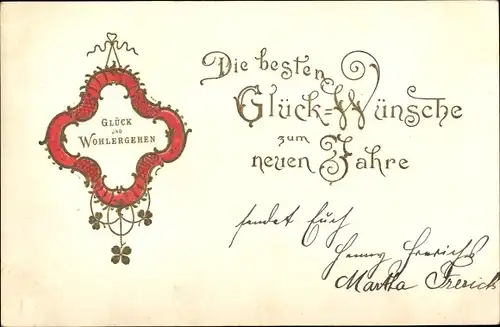 GLÜCK
UND
WOHLERGEHEN
Die besten
Glück=Wünsche
zum
neuen Jahre
sendet Euch
Henny Frerichs
Martha Frerichs